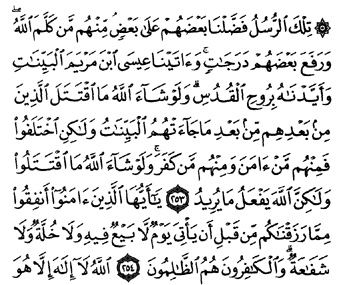 ۞ تِلْكَ ٱلرُّسُلُ فَضَّلْنَا بَعْضَهُمْ عَلَىٰ بَعْضٍۘ مِّنْهُم مَّن كَلَّمَ ٱللَّهُۖ
وَرَفَعَ بَعْضَهُمْ دَرَجَٰتٍۚ وَءَاتَيْنَا عِيسَى ٱبْنَ مَرْيَمَ ٱلْبَيِّنَٰتِ
وَأَيَّدْنَٰهُ بِرُوحِ ٱلْقُدُسِۗ وَلَوْ شَآءَ ٱللَّهُ مَا ٱقْتَتَلَ ٱلَّذِينَ
مِنۢ بَعْدِهِم مِّنۢ بَعْدِ مَا جَآءَتْهُمُ ٱلْبَيِّنَٰتُ وَلَٰكِنِ ٱخْتَلَفُوا۟
فَمِنْهُم مَّنْ ءَامَنَ وَمِنْهُم مَّن كَفَرَۚ وَلَوْ شَآءَ ٱللَّهُ مَا ٱقْتَتَلُوا۟
وَلَٰكِنَّ ٱللَّهَ يَفْعَلُ مَا يُرِيدُ ٢٥٣ يَٰٓأَيُّهَا ٱلَّذِينَ ءَامَنُوٓا۟ أَنفِقُوا۟
مِمَّا رَزَقْنَٰكُم مِّن قَبْلِ أَن يَأْتِىَ يَوْمٌ لَّا بَيْعٌ فِيهِ وَلَا خُلَّةٌ وَلَا
شَفَٰعَةٌۗ وَٱلْكَٰفِرُونَ هُمُ ٱلظَّٰلِمُونَ ٢٥٤ ٱللَّهُ لَآ إِلَٰهَ إِلَّا هُوَ